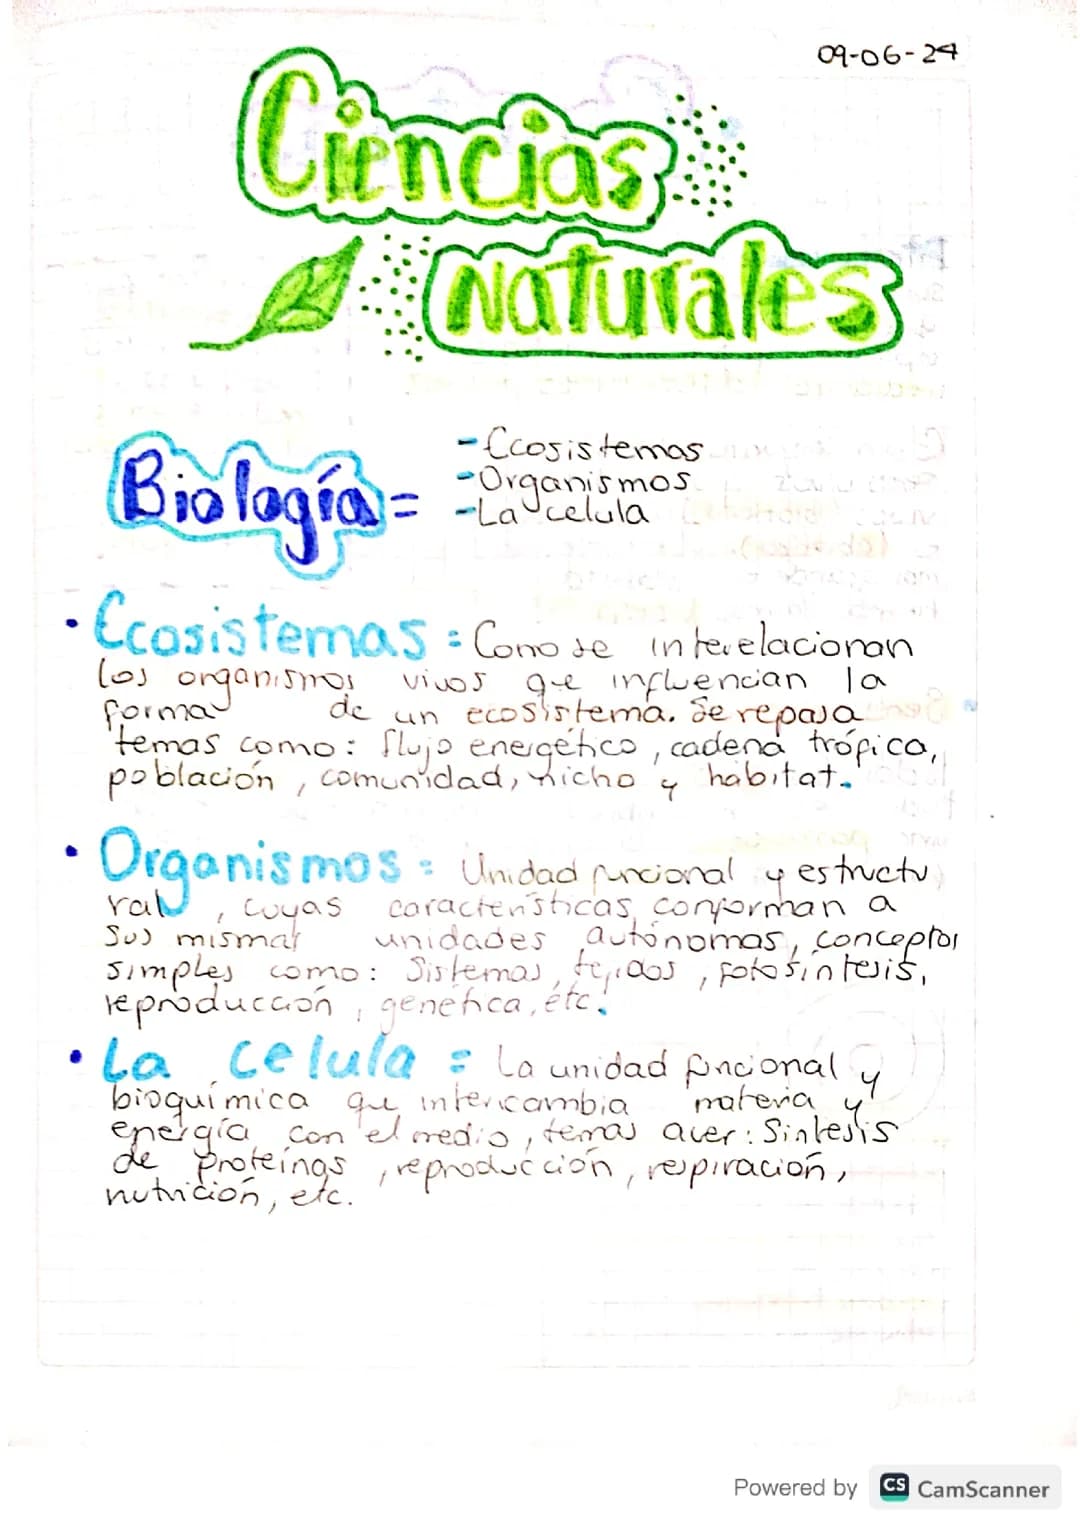 09-06-24
Ciencias
Naturales
Biología =
- Ecosistemas
- Organismos
- La celula
• Ecosistemas = Como se interelacionan
los organismos vivos que influencian la
forma de un ecosistema. Se repasa
temas como: flujo energético, cadena trópica,
población, comunidad, nicho y habitat.
• Organismos = Unidad funcional y estructu
ral, cuyas características conforman a
sus mismas unidades autónomas, conceptos
simples como: Sistemas, tejidos, fotosíntesis,
reproducción, genética, étc.
• La celula = La unidad funcional y
bioquímica que intercambia materia y
energía con el medio, temas aver: Sintesis
de proteínas, reproducción, respiración,
nutrición, etc.
Powered by CS CamScanner